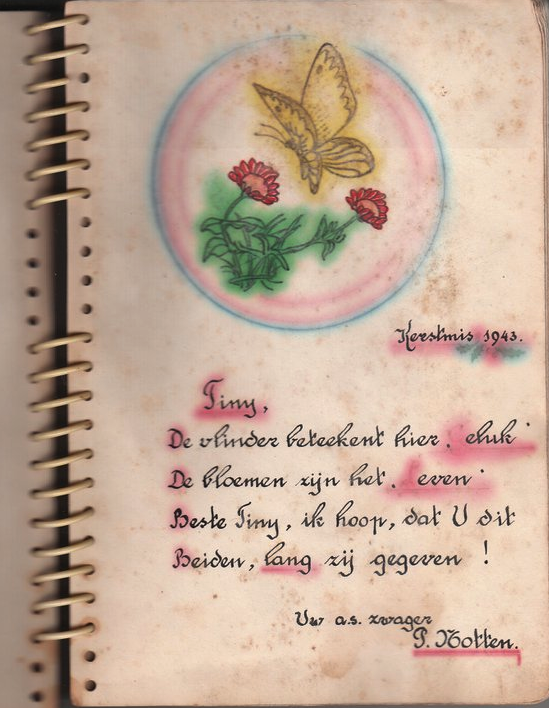 Kerstmis 1943.
Tiny,
De vlinder beteekent hier „ eluk"
De bloemen zijn het „ even"
Beste Tiny, ik hoop, dat U dit
Beiden, lang zij gegeven !
Uw a.s. zwager
P. Notten.